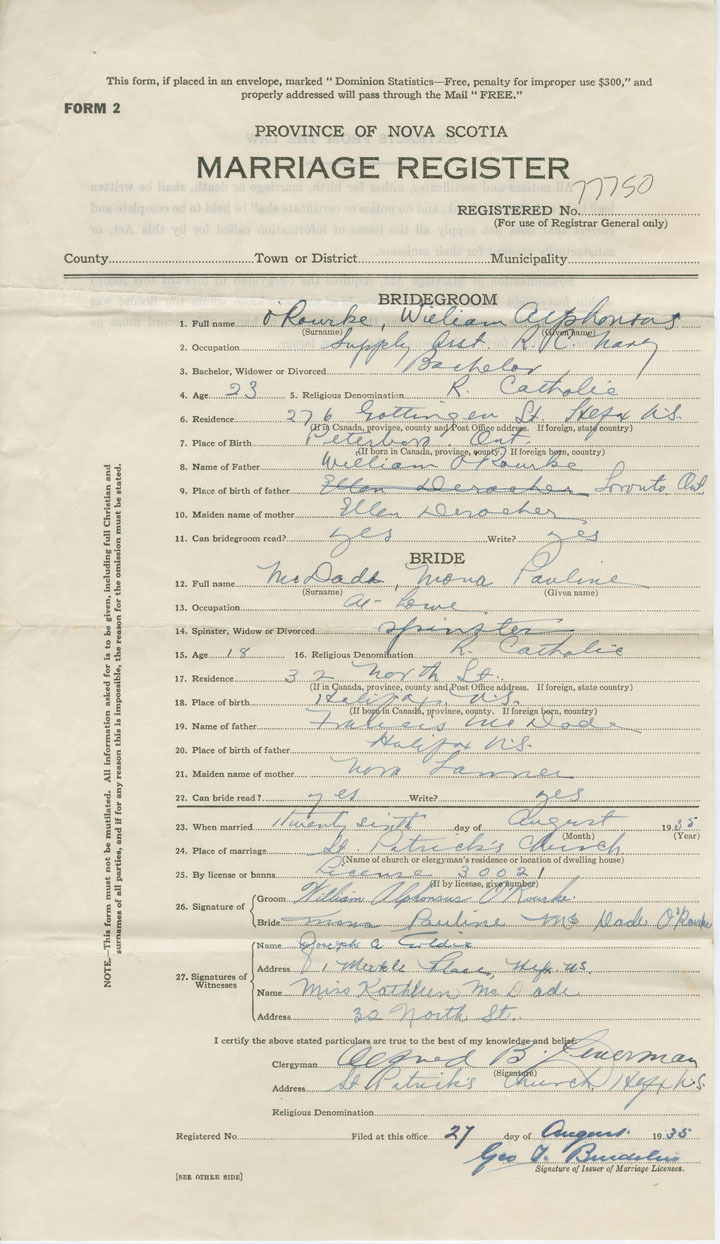 This form, if placed in an envelope, marked " Dominion Statistics—Free, penalty for improper use $300," and
properly addressed will pass through the Mail " FREE."
FORM 2
PROVINCE OF NOVA SCOTIA
MARRIAGE REGISTER
REGISTERED No. 77750
(For use of Registrar General only)
County Town or District Municipality
BRIDEGROOM
1. Full name O'Rourke, William Alphonsus
(Surname) (Given name)
2. Occupation Supply Asst. R. C. Navy
3. Bachelor, Widower or Divorced Bachelor
4. Age 23 5. Religious Denomination R. Catholic
6. Residence 276 Gottingen St. Hfx N.S.
(If in Canada, province, county and Post Office address. If foreign, state country)
7. Place of Birth Peterboro. Ont.
(If born in Canada, province, county. If foreign born, country)
8. Name of Father William O'Rourke
9. Place of birth of father Ellen Derocher Toronto Ont
10. Maiden name of mother Ellen Derocher
11. Can bridegroom read? yes Write? yes
BRIDE
12. Full name McDade, Mona Pauline
(Surname) (Given name)
13. Occupation At Home
14. Spinster, Widow or Divorced Spinster
15. Age 18 16. Religious Denomination R. Catholic
17. Residence 32 North St.
(If in Canada, province, county and Post Office address. If foreign, state country)
18. Place of birth Halifax, N.S.
(If born in Canada, province, county. If foreign born, country)
19. Name of father Francis McDade
20. Place of birth of father Halifax N.S.
21. Maiden name of mother Nora
22. Can bride read? yes Write? yes
23. When married twenty sixth day of August 1935
(Month) (Year)
24. Place of marriage St Patrick's Church
(Name of church or clergyman's residence or location of dwelling house)
25. By license or banns License 30021
(If by license, give number)
26. Signature of Groom William Alphonsus O'Rourke
Bride Mona Pauline Mc Dade O'Rourke
27. Signatures of Witnesses
Name Joseph
Address 1 Place, Hfx N.S.
Name Miss Kathleen McDade
Address 32 North St.
I certify the above stated particulars are true to the best of my knowledge and belief.
Clergyman Alfred B.
(Signature)
Address St Patrick's Church, Hfx N.S.
Religious Denomination
Registered No. Filed at this office 27 day of August 1935
Geo
Signature of Issuer of Marriage Licenses.
[SEE OTHER SIDE]
NOTE.—This form must not be mutilated. All information asked for is to be given, including full Christian and
surnames of all parties, and if for any reason this is impossible, the reason for the omission must be stated.